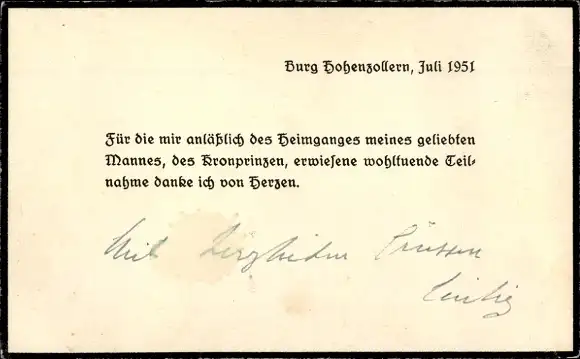 Burg Hohenzollern, Juli 1951
Für die mir anläßlich des Heimganges meines geliebten
Mannes, des Kronprinzen, erwiesene wohltuende Teil-
nahme danke ich von Herzen.
Mit herzlichen Grüssen
Cecilie